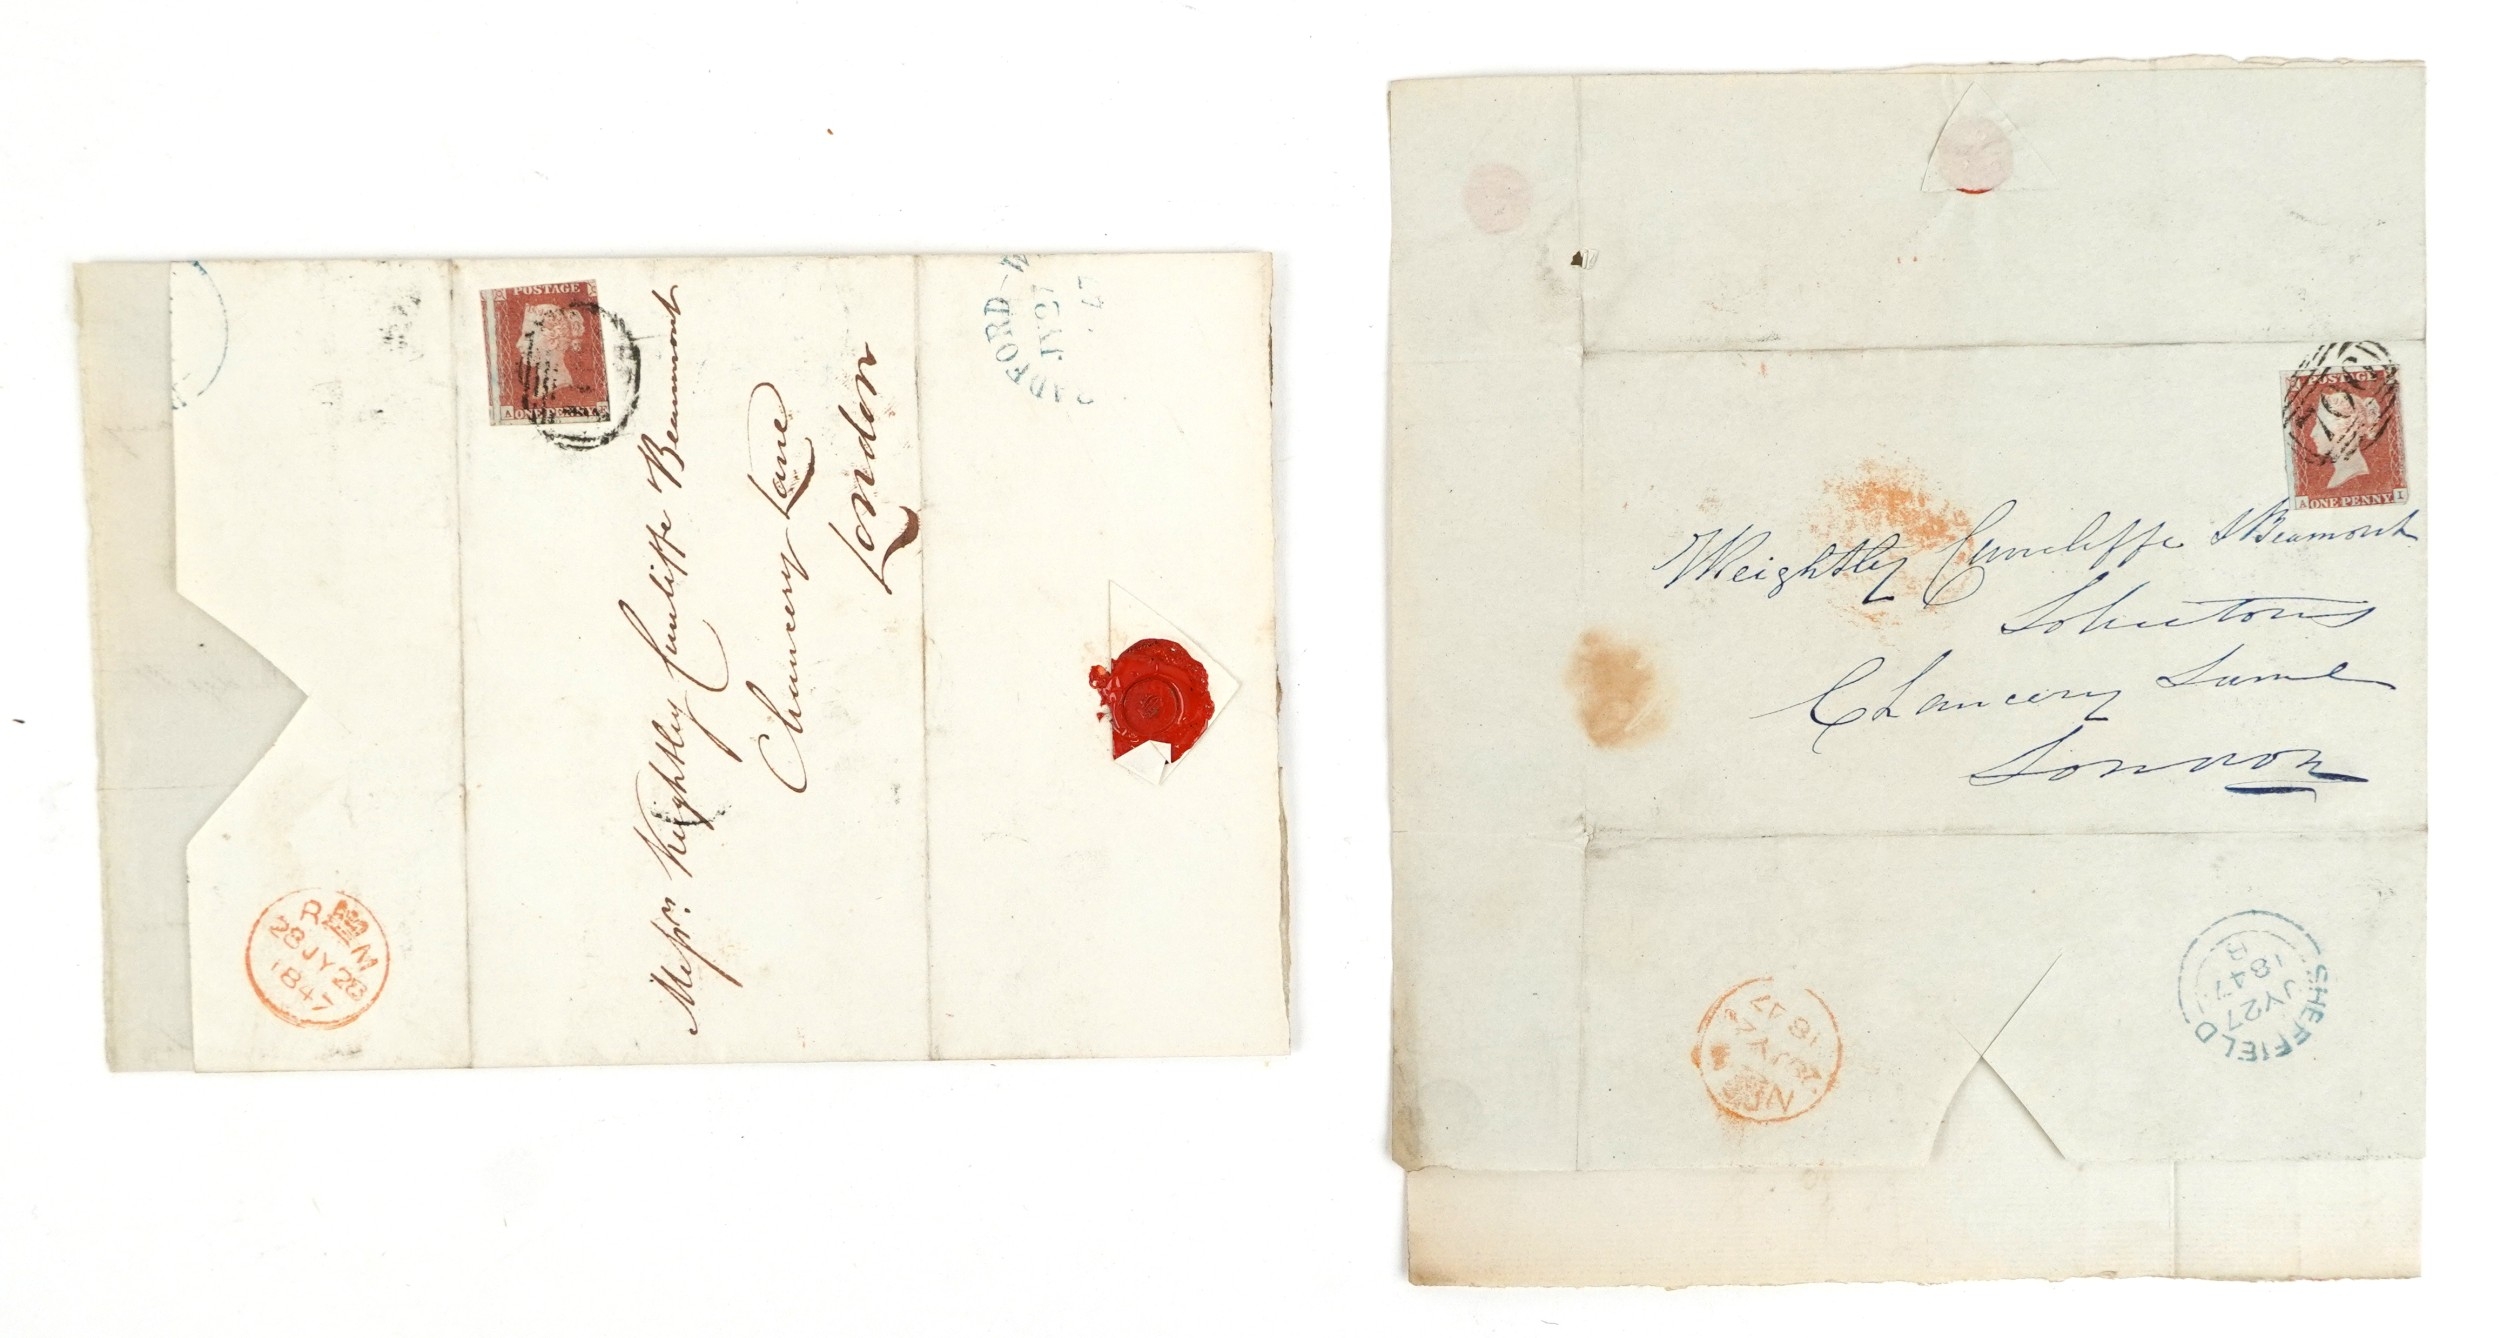 POSTAGE
A ONE PENNY
Messrs. Keightley Cunliffe & Beaumont
Chancery Lane
London
ADFORD
JY 27
47
28 JY 28
1847
POSTAGE
A ONE PENNY I
Cuncliffe & Beaumont
Chancery Lane
London
SHEFFIELD
JY 27
1847
1847